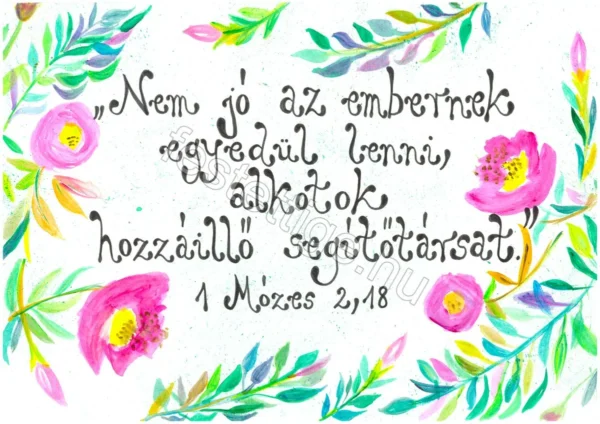 „Nem jó az embernek
egyedül lenni,
alkotok
hozzáillő segítőtársat.”
1 Mózes 2,18
festettige.hu